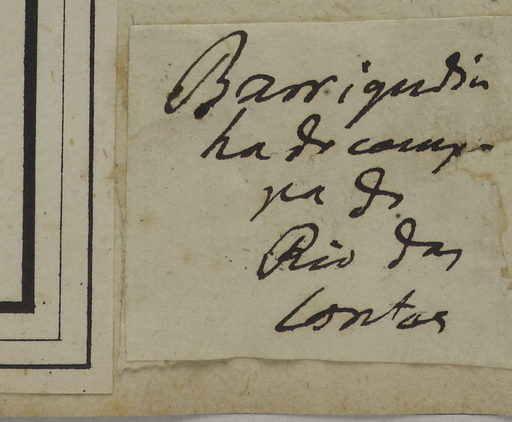 Barrigudin
ha do camp-
pa do
Rio das
Contas